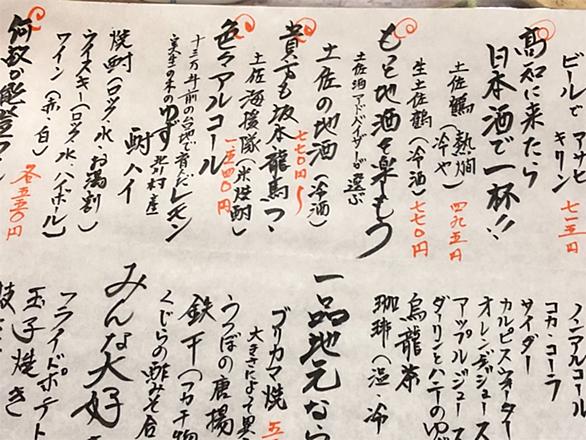 ビールで アサヒ
キリン
七一五円
高知に来たら
日本酒で一杯!!
土佐鶴(熱燗
冷や)
四九五円
生土佐鶴(冷酒)七七〇円
もっと地酒を楽もう
土佐酒アドバイザーが選ぶ
土佐の地酒(冷酒)
七七〇円〜
貴方も坂本龍馬っ
土佐海援隊(米焼酎)
一五四〇円
色々アルコール
十三万年前の台地で育んだレモン
実生の木のゆず 北川村産
酎ハイ
焼酎(ロック・水・お湯割)
ウイスキー(ロック・水・ハイボール)
ワイン(赤・白)
各五五〇円
何故か能登の
ノンアルコール
コカ・コーラ
サイダー
カルピスウォーター
オレンヂジュース
アップルジュース
ダーリンとハニーのゆず
烏龍茶
珈琲(温・冷
一品地元なら
ブリカマ焼
大きさによって異
うつぼの唐揚
鉄干(フカ干物
くじらの酢みそ合
みんな大好
フライドポテト
玉子焼き
枝